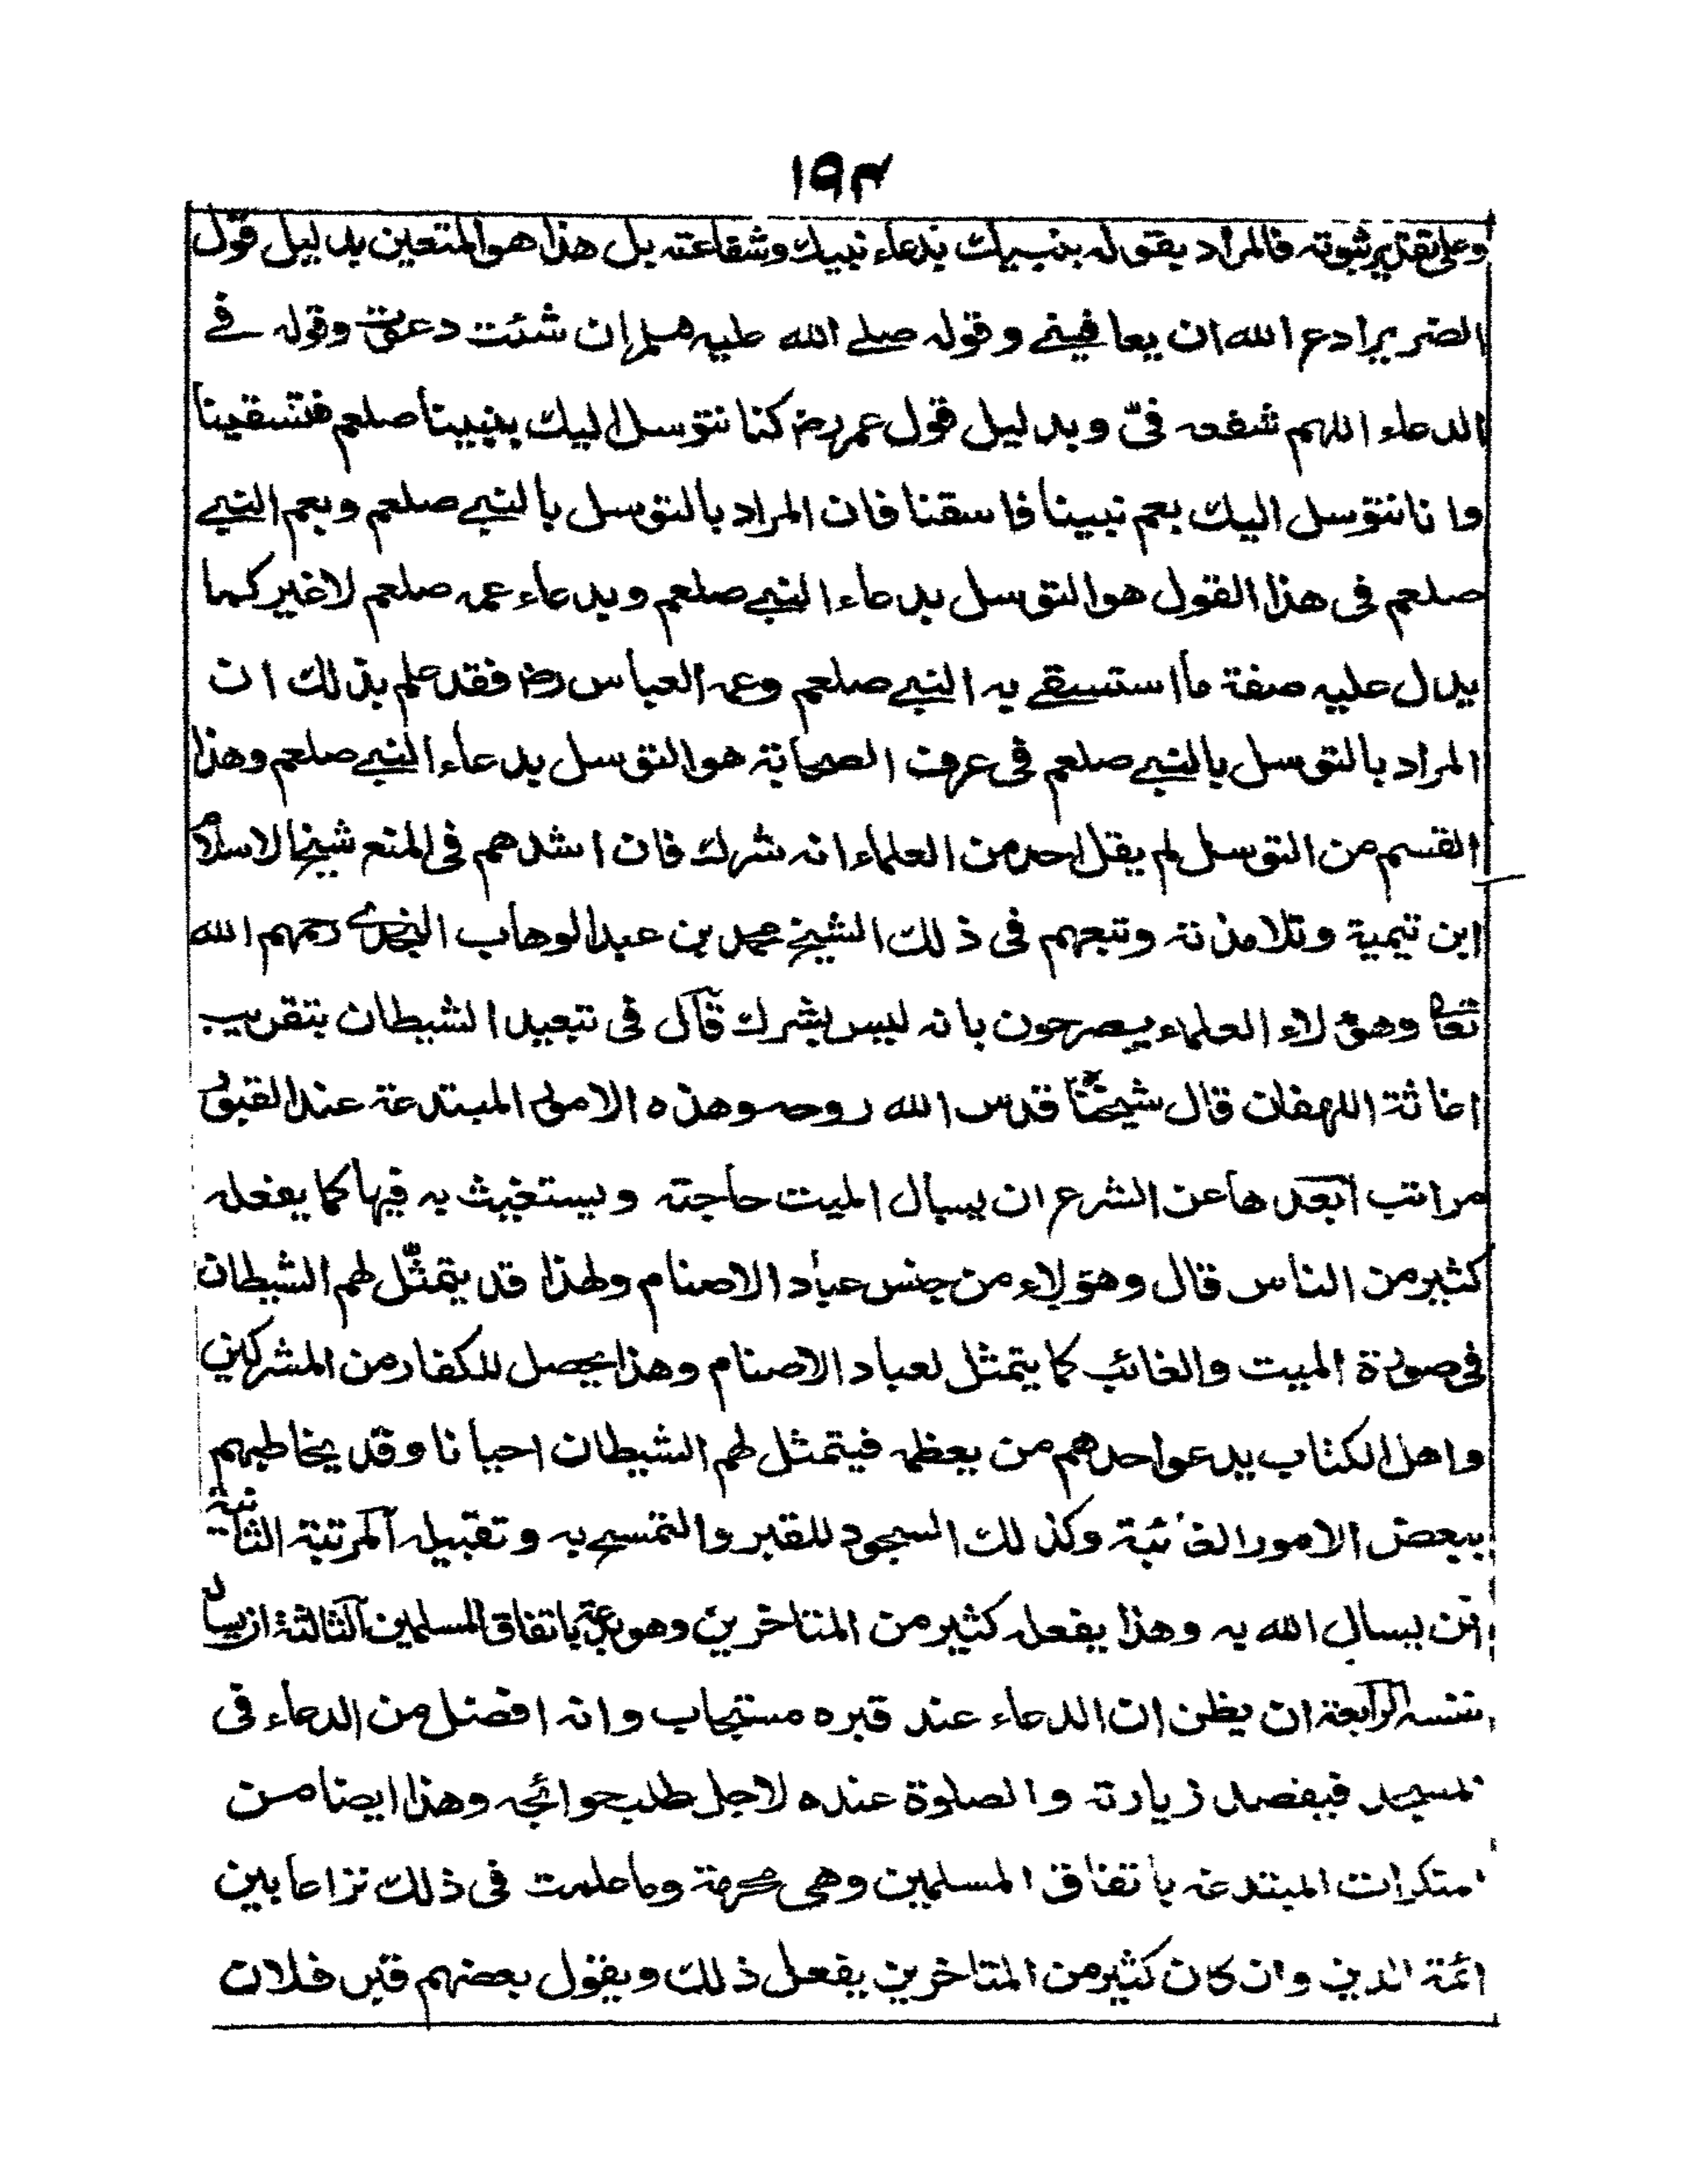 ١٩٣
وعلى تقدير ثبوته فالمراد بقوله بنبيك بدعاء نبيك وشفاعته بل هذا هو المتعين بدليل قول
الضرير ادع الله ان يعافيني وقوله صلى الله عليه وسلم ان شئت دعوت وقوله في
الدعاء اللهم شفعه فيّ وبدليل قول عمر رض كنا نتوسل اليك بنبينا صلعم فتسقينا
وانا نتوسل اليك بعم نبينا فاسقنا فان المراد بالتوسل بالنبي صلعم وبعم النبي
صلعم في هذا القول هو التوسل بدعاء النبي صلعم وبدعاء عمه صلعم لا غير كما
يدل عليه صفة ما استسقى به النبي صلعم وعمه العباس رض فقد علم بذلك ان
المراد بالتوسل بالنبي صلعم في عرف الصحابة هو التوسل بدعاء النبي صلعم وهذا
القسم من التوسل لم يقل احد من العلماء انه شرك فان اشدهم في المنع شيخ الاسلام
ابن تيمية وتلامذته وتبعهم في ذلك الشيخ محمد بن عبد الوهاب النجدي رحمهم الله
تعا وهؤلاء العلماء يصرحون بانه ليس بشرك قال في تبعيد الشيطان بتقريب
اغاثة اللهفان قال شيخنا قدس الله روحه وهذه الامور المبتدعة عند القبور
مراتب ابعدها عن الشرع ان يسال الميت حاجته ويستغيث به فيها كما يفعله
كثير من الناس قال وهؤلاء من جنس عباد الاصنام ولهذا قد يتمثّل لهم الشيطان
في صورة الميت والغائب كما يتمثل لعباد الاصنام وهذا يحصل للكفار من المشركين
واهل الكتاب يدعو احدهم من يعظمه فيتمثل لهم الشيطان احيانا وقد يخاطبهم
ببعض الامور الغائبة وكذلك السجود للقبر والتمسح به وتقبيله المرتبة الثانية
ان يسال الله به وهذا يفعله كثير من المتاخرين وهو بدعة باتفاق المسلمين الثالثة ان يسال
نفسه الرابعة ان يظن ان الدعاء عند قبره مستجاب وانه افضل من الدعاء في
المسجد فيقصد زيارته والصلوة عنده لاجل طلب حوائجه وهذا ايضا من
المنكرات المبتدعة باتفاق المسلمين وهي محرمة وما علمت في ذلك نزاعا بين
ائمة الدين وان كان كثير من المتاخرين يفعل ذلك ويقول بعضهم قبر فلان